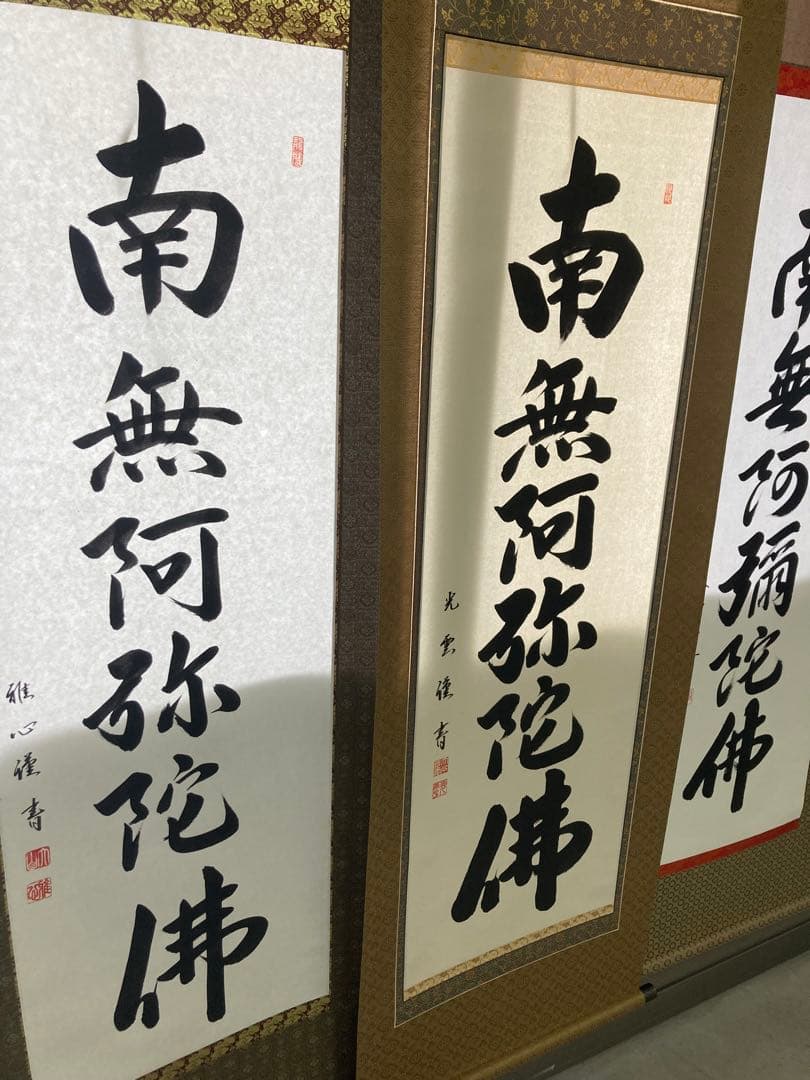 南無阿弥陀佛
雅心謹書
南無阿弥陀佛
光雲謹書
南無阿彌陀佛